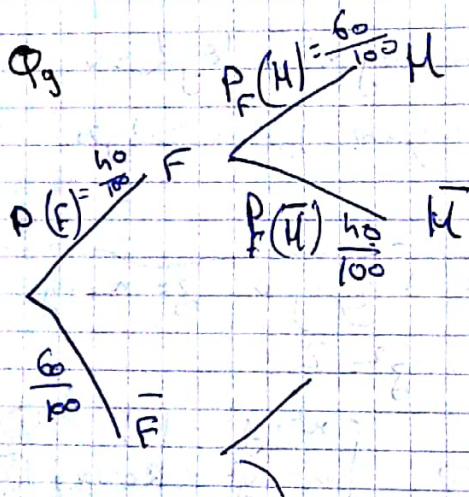 φg
P_F(M) = 60/100 M
P(F) = 40/100 F
P_F(M̅) 40/100 M̅
60/100 F̅